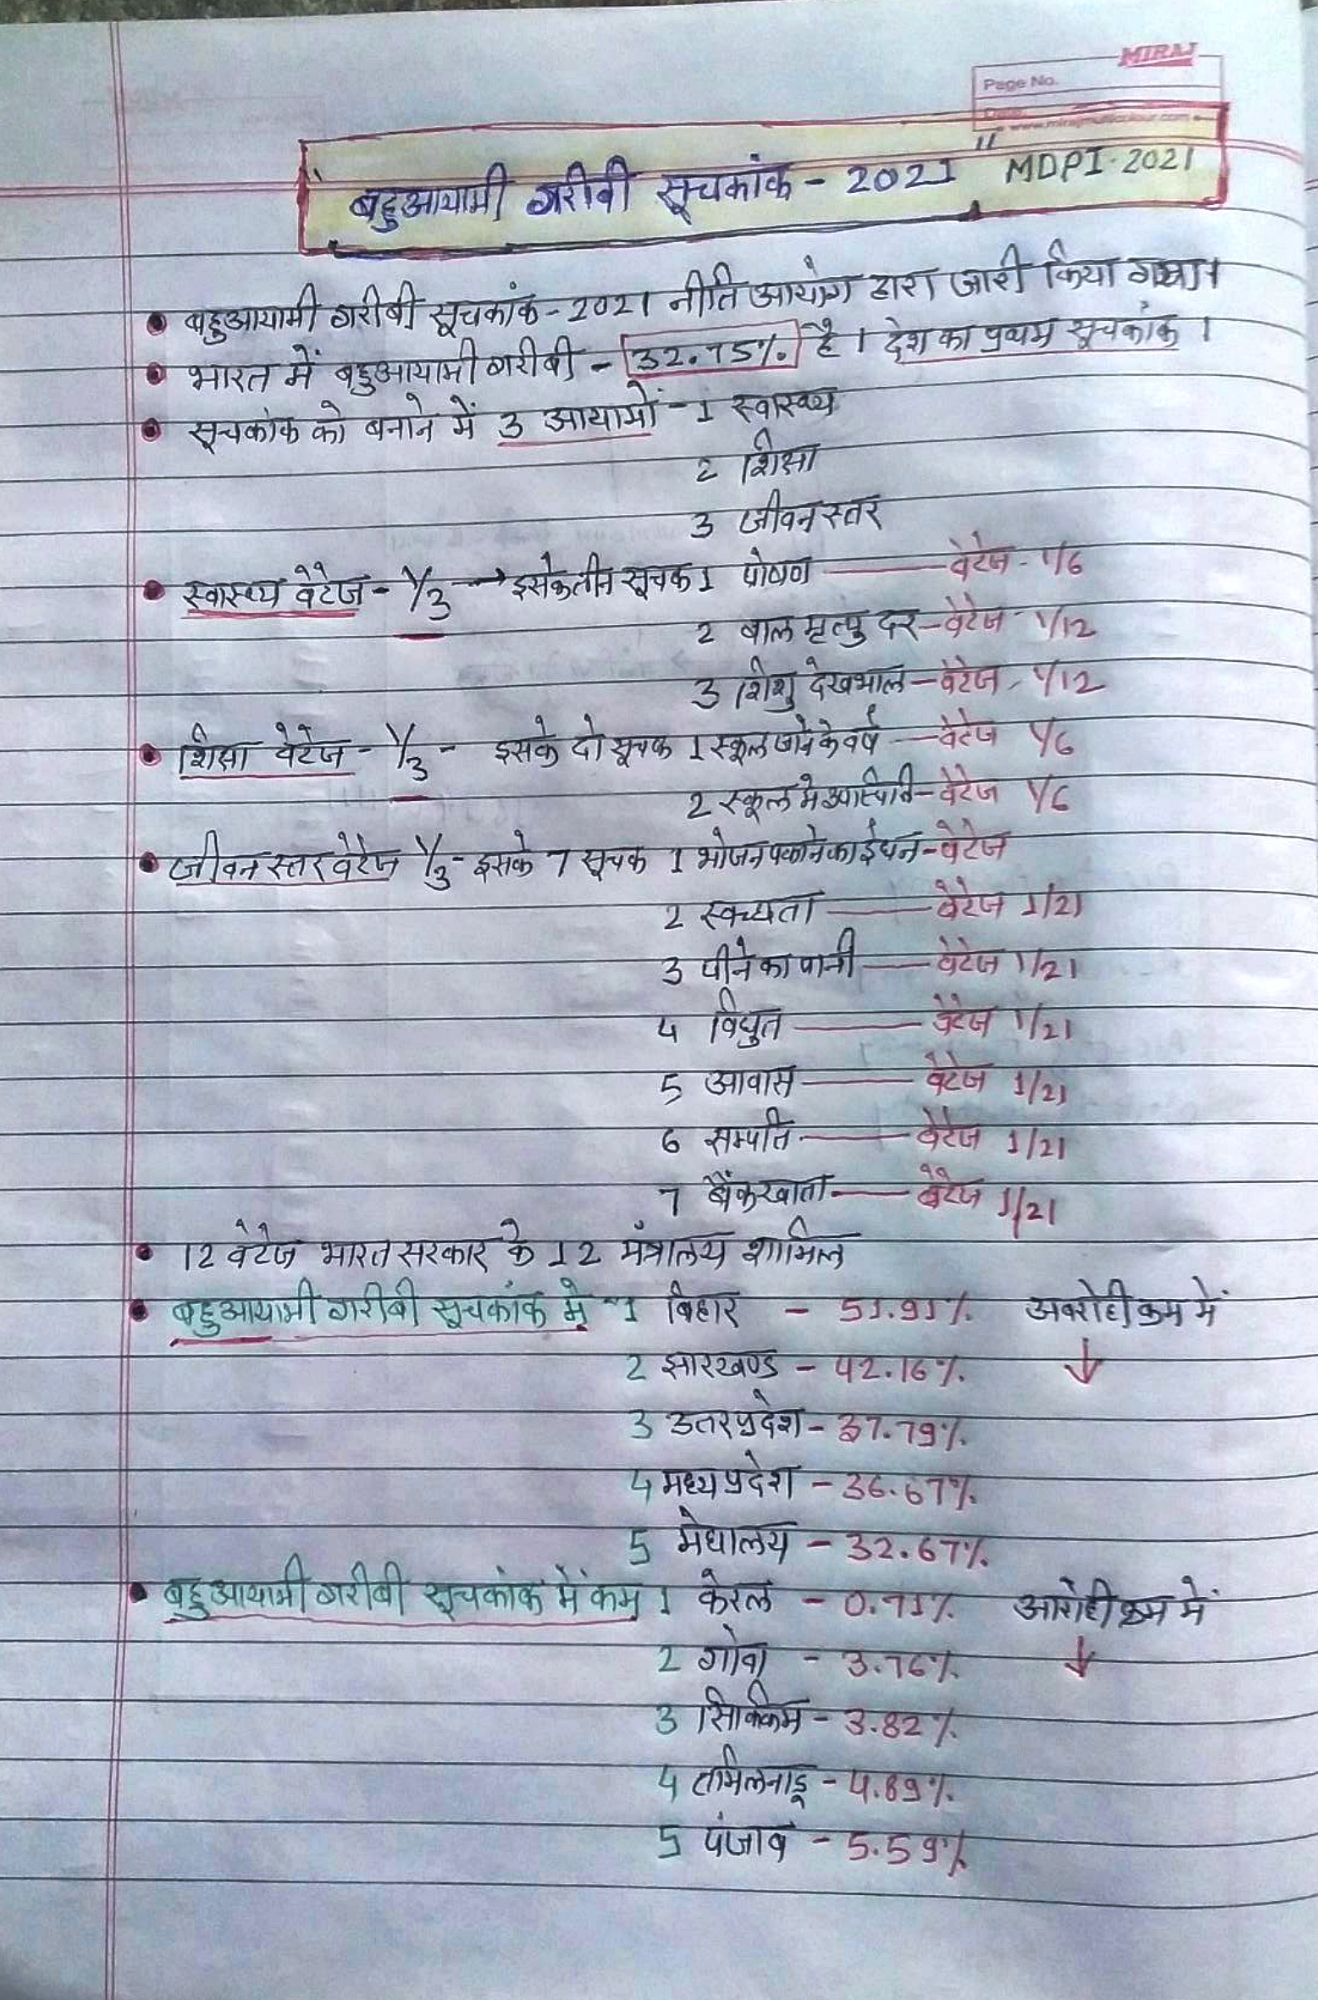 MIRAJ
Page No.
Date
www.mirajmulticolour.com
बहुआयामी गरीबी सूचकांक - 2021" MDPI-2021
• बहुआयामी गरीबी सूचकांक - 2021 नीति आयोग द्वारा जारी किया गया।
• भारत में बहुआयामी गरीबी - 32.75% है। देश का प्रथम सूचकांक।
• सूचकांक को बनाने में 3 आयामों - 1 स्वास्थ्य
2 शिक्षा
3 जीवन स्तर
• स्वास्थ्य वेटेज - 1/3 → इसके तीन सूचक 1 पोषण —— वेटेज - 1/6
2 बाल मृत्यु दर - वेटेज - 1/12
3 शिशु देखभाल - वेटेज - 1/12
• शिक्षा वेटेज - 1/3 - इसके दो सूचक 1 स्कूल जाने के वर्ष - वेटेज 1/6
2 स्कूल मे उपस्थिति - वेटेज 1/6
• जीवन स्तर वेटेज 1/3 - इसके 7 सूचक 1 भोजन पकाने का ईधन - वेटेज
2 स्वच्यता —— वेटेज 1/21
3 पीने का पानी —— वेटेज 1/21
4 विधुत —— वेटेज 1/21
5 आवास —— वेटेज 1/21
6 सम्पति —— वेटेज 1/21
7 बैंक खाता —— वेटेज 1/21
• 12 वेटेज भारत सरकार के 12 मंत्रालय शामिल
• बहुआयामी गरीबी सूचकांक मे - 1 बिहार - 51.91% अवरोही क्रम में
2 झारखण्ड - 42.16% ↓
3 उतर प्रदेश - 37.79%
4 मध्य प्रदेश - 36.67%
5 मेघालय - 32.67%
• बहुआयामी गरीबी सूचकांक में कम 1 केरल - 0.71% आरोही क्रम में
2 गोवा - 3.76% ↓
3 सिक्किम - 3.82%
4 तमिलनाडू - 4.89%
5 पंजाब - 5.59%